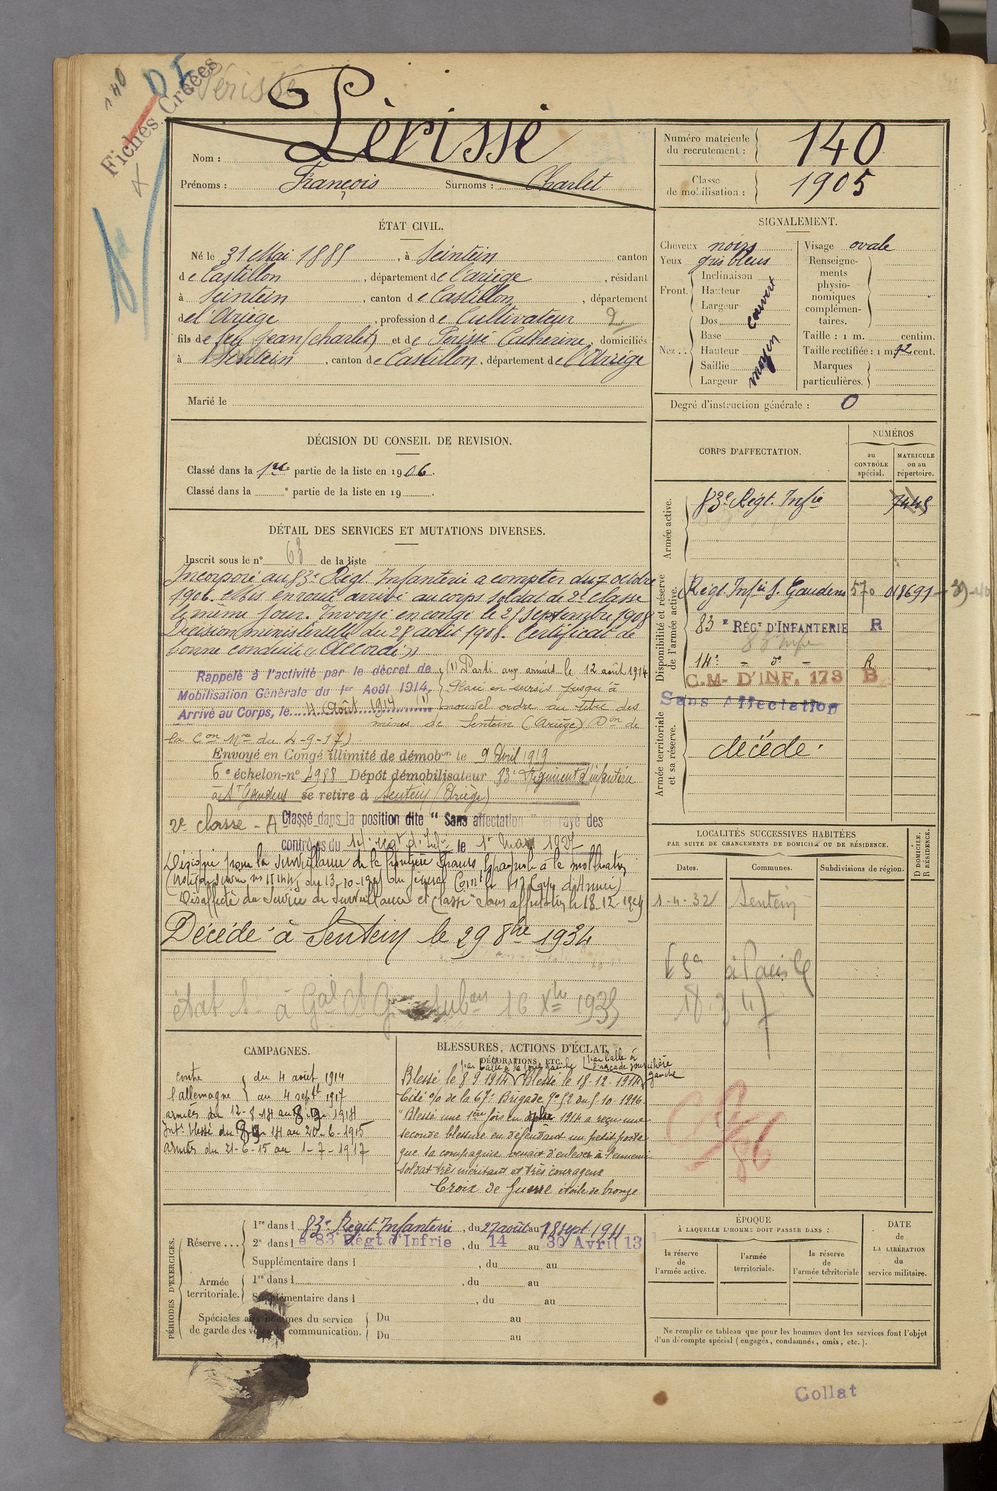 140
Périssé
Fiches Créées
Périssé
Nom :
Prénoms : François Surnoms : Charlet
Numéro matricule du recrutement : 140
Classe de mobilisation : 1905
ÉTAT CIVIL.
Né le 31 Mai 1885, à Sentein canton
de Castillon, département de l'Ariège, résidant
à Sentein, canton de Castillon, département
de l'Ariège, profession de Cultivateur
fils de feu Jean (charlet) et de Périssé Catherine, domiciliés
à Sentein, canton de Castillon, département de l'Ariège
Marié le
SIGNALEMENT.
Cheveux noirs
Yeux gris bleus
Front. Inclinaison
Hauteur
Largeur
couvert
Nez... Dos
Base
Hauteur
Saillie
Largeur
moyen
Visage ovale
Renseignements physionomiques complémentaires.
Taille : 1 m. centim.
Taille rectifiée : 1 m 72 cent.
Marques particulières.
Degré d'instruction générale : 0
DÉCISION DU CONSEIL DE REVISION.
Classé dans la 1re partie de la liste en 1906.
Classé dans la e partie de la liste en 19
CORPS D'AFFECTATION.
NUMÉROS
au CONTRÔLE spécial.
MATRICULE ou au répertoire.
Armée active.
83e Régt. Infie 7445
Disponibilité et réserve de l'armée active.
Régt Infie St Gaudens 570 018691
83e RÉGt D'INFANTERIE R
14e - do - R
C.M. D'INF. 173 B
Sans Affectation
Armée territoriale et sa réserve.
décédé.
DÉTAIL DES SERVICES ET MUTATIONS DIVERSES.
Inscrit sous le n° 63 de la liste
Incorporé au 83e Régt Infanterie a compter du 7 octobre
1906, et mis en route, arrivé au corps soldat de 2e classe
le même jour. Envoyé en congé le 25 septembre 1908
Décision ministérielle du 25 août 1908. Certificat de
bonne conduite "Accordé"
Rappelé à l'activité par le décret de
Mobilisation Générale du 1er Août 1914.
Arrivé au Corps, le 4 Août 1914 (1)
(1) Parti aux armées le 12 août 1914
Placé en sursis jusqu'à
nouvel ordre au titre des
mines de Sentein (Ariège) Don de
la Con Mre du 4-9-17)
Envoyé en Congé illimité de démobon le 9 Avril 1919
6e échelon-n° 4988 Dépôt démobilisateur 83e Régiment d'infanterie
à St Gaudens se retire à Sentein (Ariège)
2e classe - A Classé dans la position dite " Sans affectation " et rayé des
contrôles du 14e régt d'Inf. le 1er Mars 1927
Désigné pour la surveillance de la frontière Franco Espagnole à la mobilisation
Désaffecté du Service de Surveillance et Classé Sans affectation le 18.12.1929
Décédé à Sentein le 29 8bre 1934
LOCALITÉS SUCCESSIVES HABITÉES
PAR SUITE DE CHANGEMENTS DE DOMICILE OU DE RÉSIDENCE.
Dates. Communes. Subdivisions de région. D DOMICILE. R RÉSIDENCE.
1-4-32 Sentein
18.3.47
CAMPAGNES.
contre l'allemagne
du 4 août 1914
au 4 septb 1917
armées du 12-8-14 au 8.9-1914
Intr blessé du 9.9-14 au 20-6-1915
armées du 21-6-15 au 1-7-1917
BLESSURES, ACTIONS D'ÉCLAT,
DÉCORATIONS, ETC.
Blessé le 8.9.1914 Blessé le 18.12.1914
Cité o/o de la 67e Brigade n° 52 du 5.10.1916
"Blessé une 1ère fois en septbre 1914 a reçu une
seconde blessure en défendant un petit poste
que sa compagnie venait d'enlever à l'ennemi
soldat très méritant et très courageux
Croix de guerre étoile de bronze
PÉRIODES D'EXERCICES.
Réserve
1re dans l 83e Régit Infanterie, du 27 août au 18 sept 1911
2e dans l e 83e Régt. d'Infrie, du 14 au 30 Avril 13
Supplémentaire dans l , du au
Armée territoriale.
1re dans l , du au
Supplémentaire dans l , du au
Spéciales aux hommes du service
de garde des voies de communication.
Du au
Du au
ÉPOQUE
À LAQUELLE L'HOMME DOIT PASSER DANS :
la réserve de l'armée active.
l'armée territoriale.
la réserve de l'armée territoriale
DATE de LA LIBÉRATION du service militaire.
Ne remplir ce tableau que pour les hommes dont les services font l'objet
d'un décompte spécial (engagés, condamnés, omis, etc.).
Collat